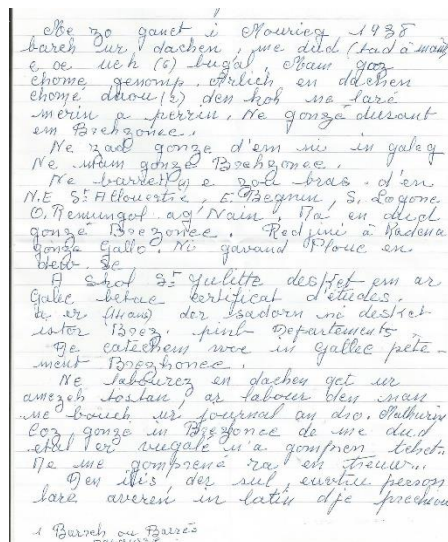 Me zo ganet i Mourieg 1938
barch ur dachen, me dud (tad a mam
e oe uch (6) bugal, Mam goz
chomé genomp. Arlich en dachen
chomé daou (2) den koh me laré
merin a perrin. Ne gonzé dusont
em Brehzonec.
Me zad gonze d'em mi in galeg
Me mam gonzé Brehzonec.
Me barrehy e zou bras. d'en
N.E. St Allouestre, E. Begnen, S. Logone
O. Remungol ag Nain, Ma en dud
gonzé Brezonec. Redjini à Radena
gonzé Gallo. Ni gavand Plouc en
A Skol Ste Julitte desket em ar
Galec betac certificat d'études.
a er (14 ans) der sadorn mé desket
istor Brez. pimb Departements
De catechem woe in Gallec
ment Brezhonec.
Me labourez en dachen get ur
amezeh tostan, ar labour den man
me bouch ur journal an dro. Mathurin
Coz gonzé in Brezonec de me dud
ehul er vugalé n'a gompren tchet.
Me me gomprené ra en treuu...
Den ilis, der sul, eurtru person
laré averen in latin dje prechiou
1 Barreh ou Barrés